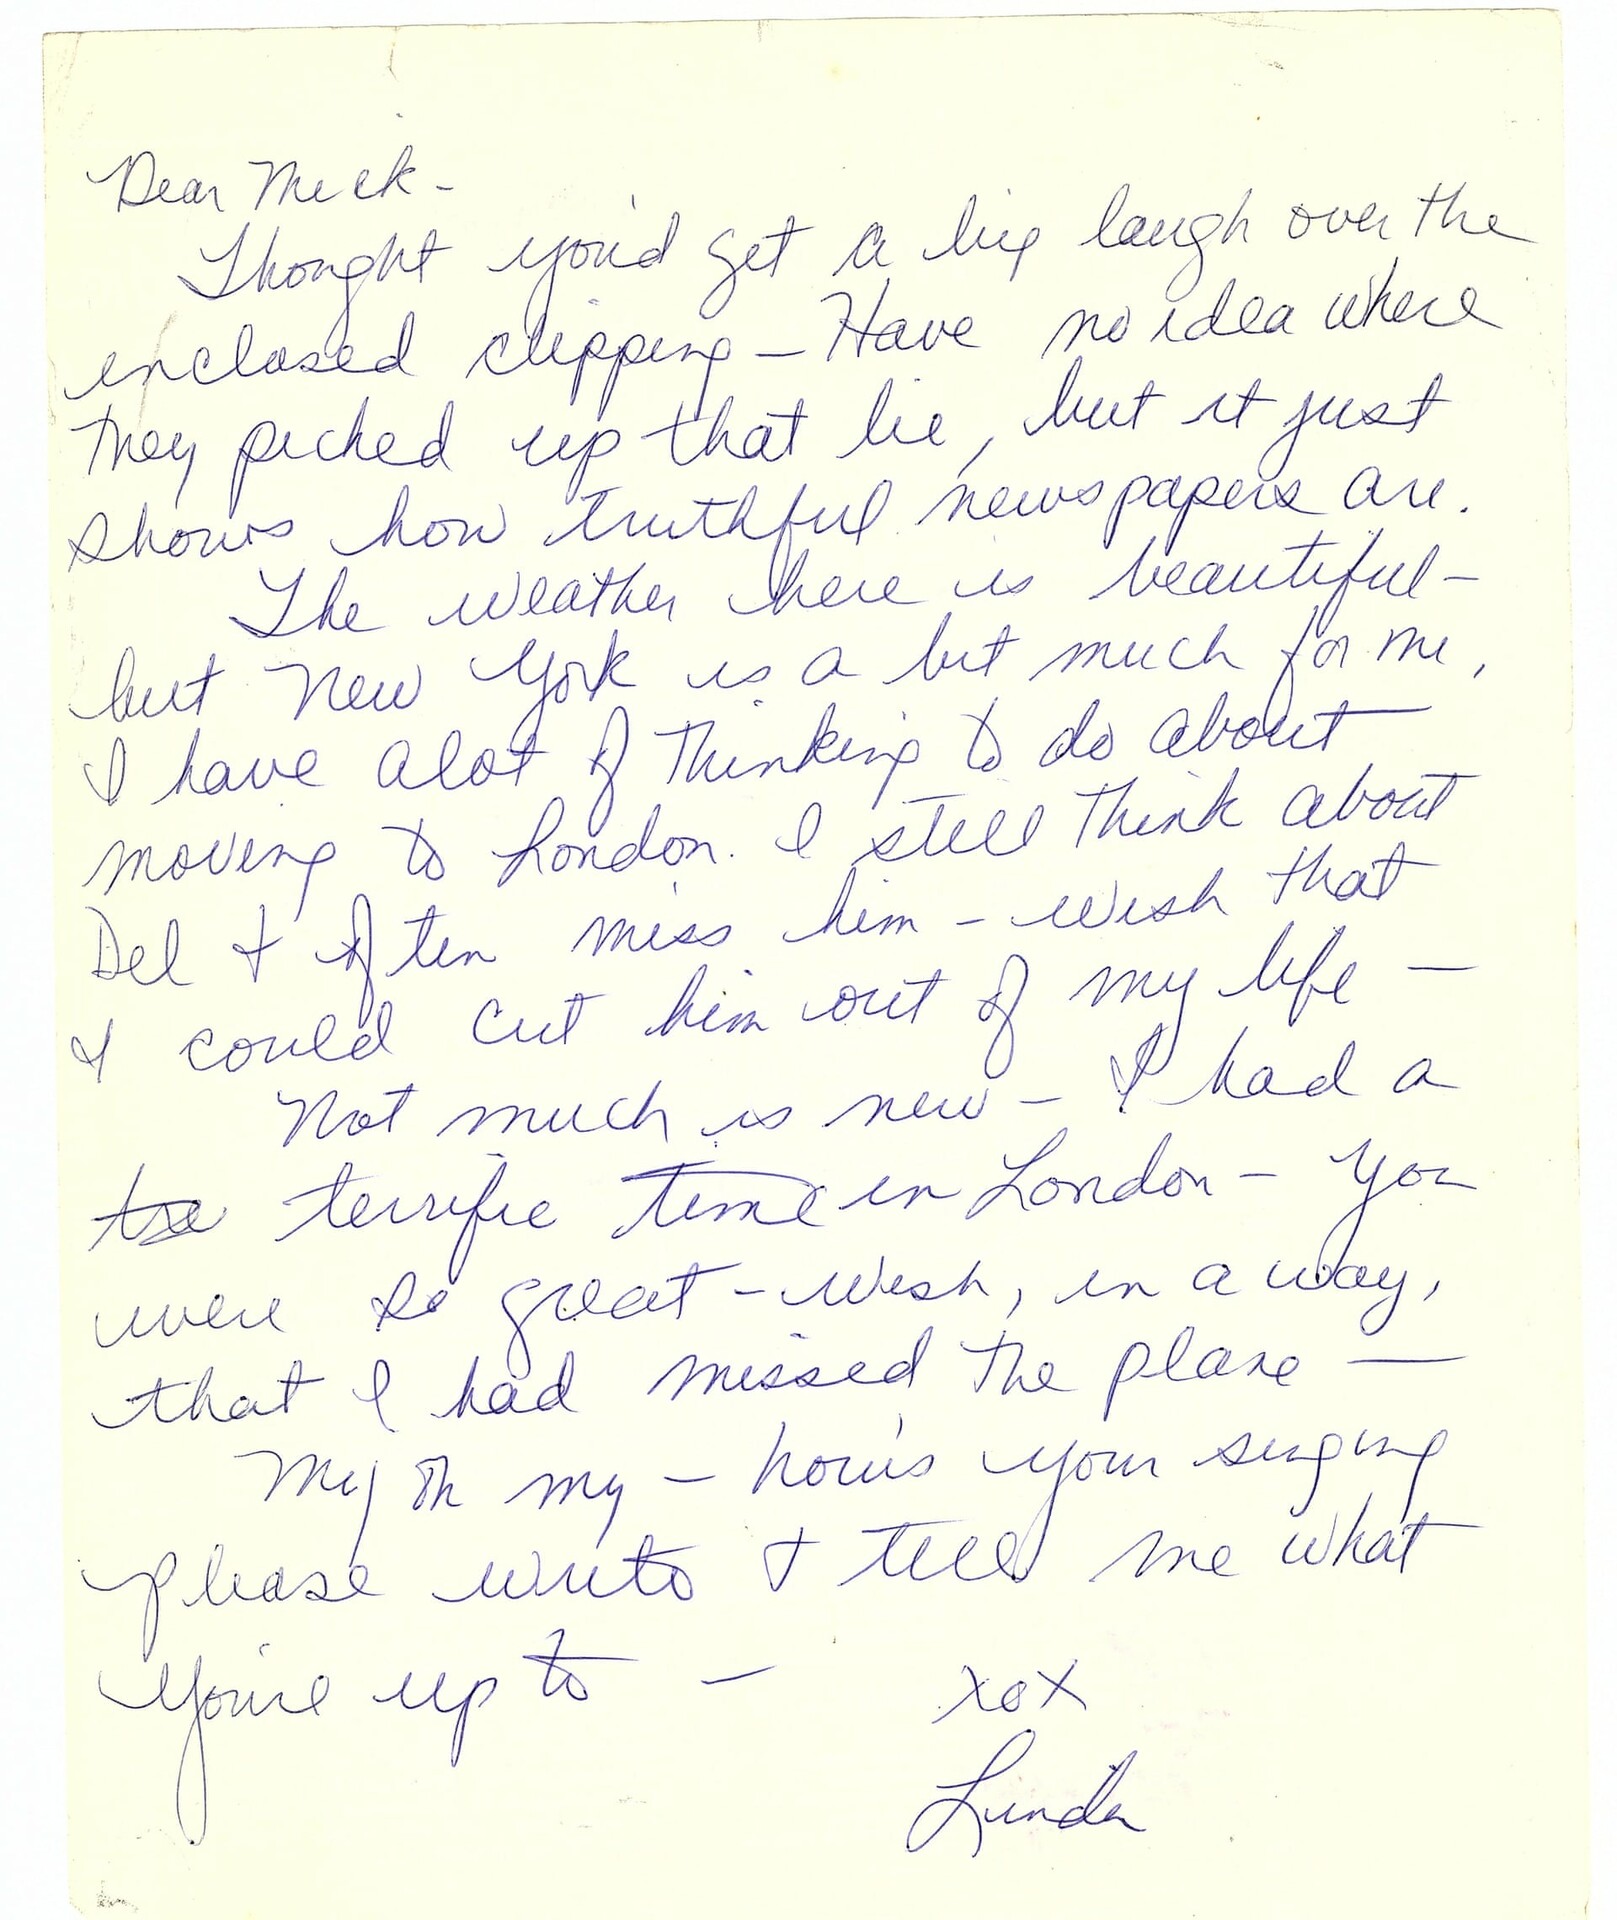 Dear Mick -
Thought you'd get a big laugh over the
enclosed clipping - Have no idea where
they picked up that lie, but it just
shows how truthful newspapers are.
The weather here is beautiful -
but New York is a bit much for me,
I have alot of thinking to do about
moving to London. I still think about
Del & often miss him - wish that
I could cut him out of my life -
Not much is new - I had a
terrific time in London - you
were so great - wish, in a way,
that I had missed the plane -
My oh my - how's your singing
please write & tell me what
you're up to -
xox
Linda